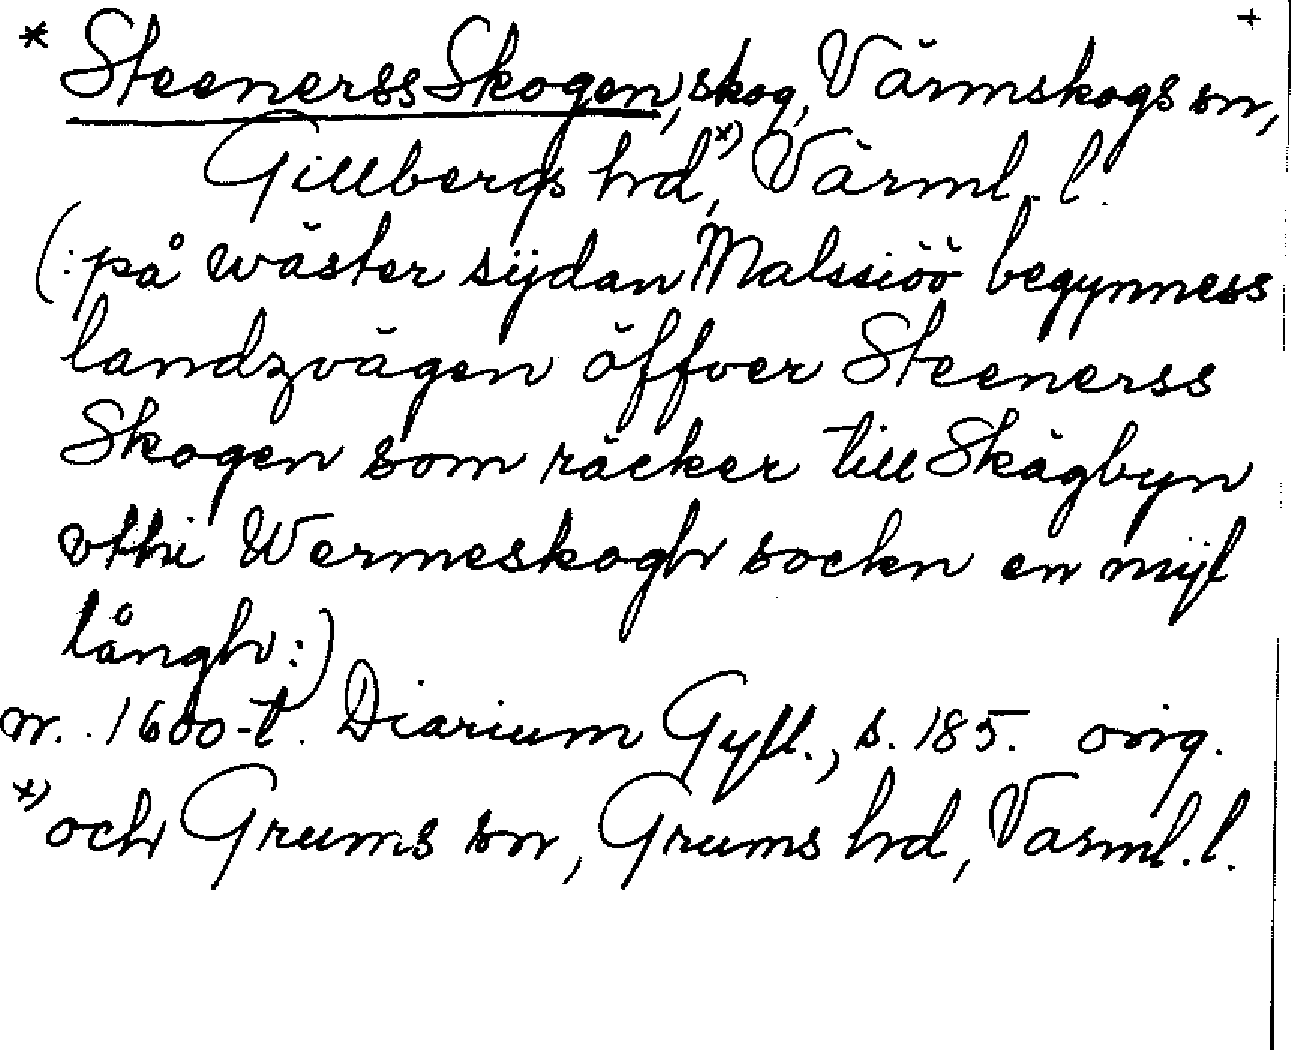 * Steenerss Skogen, skog, Värmskogs sn, +
Gillbergs hd,*) Värml. l.
(: på wäster sÿdan Malssiöö begynness
landzvägen öffver Steenerss
Skogen som räcker till Skägbyn
vthi Wermeskogh sockn en mÿl
långh :)
m. 1600-t. Diarium Gyll., s. 185. orig.
*) och Grums sn, Grums hd, Värml. l.